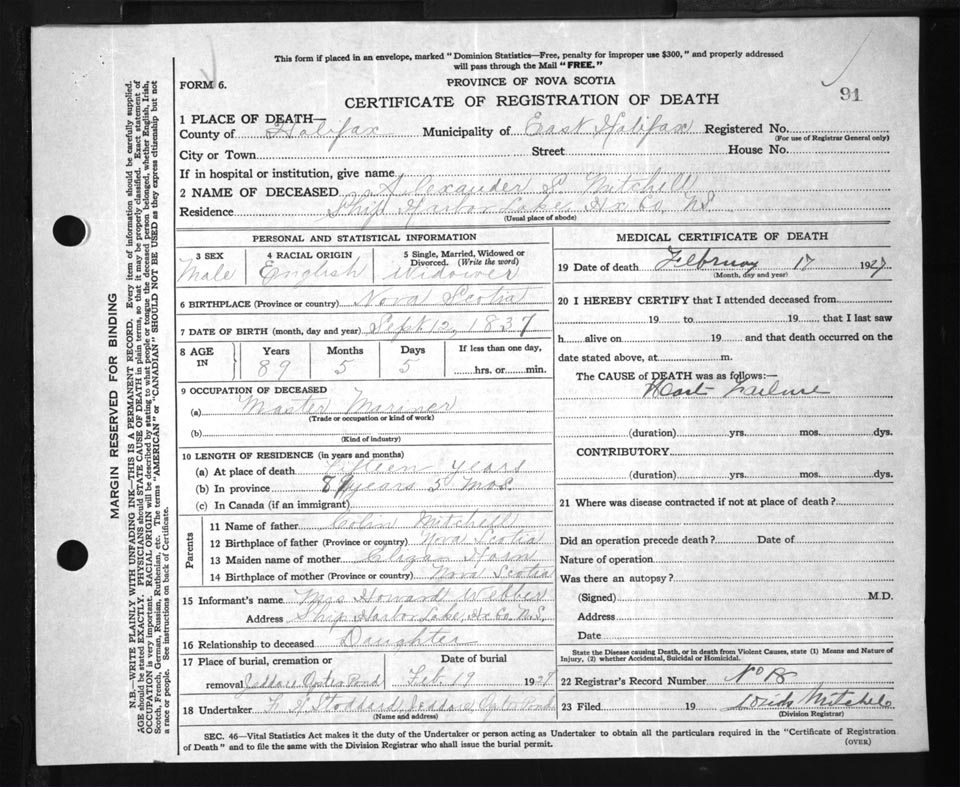 This form if placed in an envelope, marked "Dominion Statistics—Free, penalty for improper use $300," and properly addressed
will pass through the Mail "FREE."
FORM 6.
PROVINCE OF NOVA SCOTIA
91
CERTIFICATE OF REGISTRATION OF DEATH
1 PLACE OF DEATH—
County of Halifax Municipality of East Halifax Registered No.
(For use of Registrar General only)
City or Town Street House No.
If in hospital or institution, give name
2 NAME OF DECEASED Alexander S Mitchell
Residence Ship Harbor Lake, Hx Co, NS
(Usual place of abode)
PERSONAL AND STATISTICAL INFORMATION
3 SEX 4 RACIAL ORIGIN 5 Single, Married, Widowed or Divorced. (Write the word)
Male English Widower
6 BIRTHPLACE (Province or country) Nova Scotia
7 DATE OF BIRTH (month, day and year) Sept 12, 1837
8 AGE IN Years Months Days If less than one day,
89 5 5 hrs. or min.
9 OCCUPATION OF DECEASED
(a) Master Mariner
(Trade or occupation or kind of work)
(b)
(Kind of industry)
10 LENGTH OF RESIDENCE (in years and months)
(a) At place of death Fifteen years
(b) In province years 5 Mos.
(c) In Canada (if an immigrant)
Parents
11 Name of father Colin Mitchell
12 Birthplace of father (Province or country) Nova Scotia
13 Maiden name of mother Eliza
14 Birthplace of mother (Province or country) Nova Scotia
15 Informant's name Mrs Howard Webber
Address Ship Harbor Lake, Hx Co, N.S.
16 Relationship to deceased Daughter
17 Place of burial, cremation or removal Date of burial
Jeddore Oyster Pond Feb. 19 1927
18 Undertaker Stoddard, Jeddore, Oyster Pond
(Name and address)
MEDICAL CERTIFICATE OF DEATH
19 Date of death February 17 1927
(Month, day and year)
20 I HEREBY CERTIFY that I attended deceased from
19 to 19 that I last saw
h alive on 19 and that death occurred on the
date stated above, at m.
The CAUSE of DEATH was as follows:—
Failure
(duration) yrs. mos. dys.
CONTRIBUTORY
(duration) yrs. mos. dys.
21 Where was disease contracted if not at place of death?
Did an operation precede death? Date of
Nature of operation
Was there an autopsy?
(Signed) M.D.
Address
Date
State the Disease causing Death, or in death from Violent Causes, state (1) Means and Nature of
Injury, (2) whether Accidental, Suicidal or Homicidal.
22 Registrar's Record Number No
23 Filed 19 Mitchell
(Division Registrar)
SEC. 46—Vital Statistics Act makes it the duty of the Undertaker or person acting as Undertaker to obtain all the particulars required in the "Certificate of Registration
of Death" and to file the same with the Division Registrar who shall issue the burial permit.
(OVER)
MARGIN RESERVED FOR BINDING
N.B.—WRITE PLAINLY WITH UNFADING INK—THIS IS A PERMANENT RECORD. Every item of information should be carefully supplied.
AGE should be stated EXACTLY. PHYSICIANS should STATE CAUSE OF DEATH in plain terms, so that it may be properly classified. Exact statement of
OCCUPATION is very important. RACIAL ORIGIN will be described by stating to what people or tongue the deceased person belonged, whether English, Irish,
Scotch, French, German, Russian, Ruthenian, etc. The terms "AMERICAN" or "CANADIAN" SHOULD NOT BE USED as they express citizenship but not
a race or people. See instructions on back of Certificate.